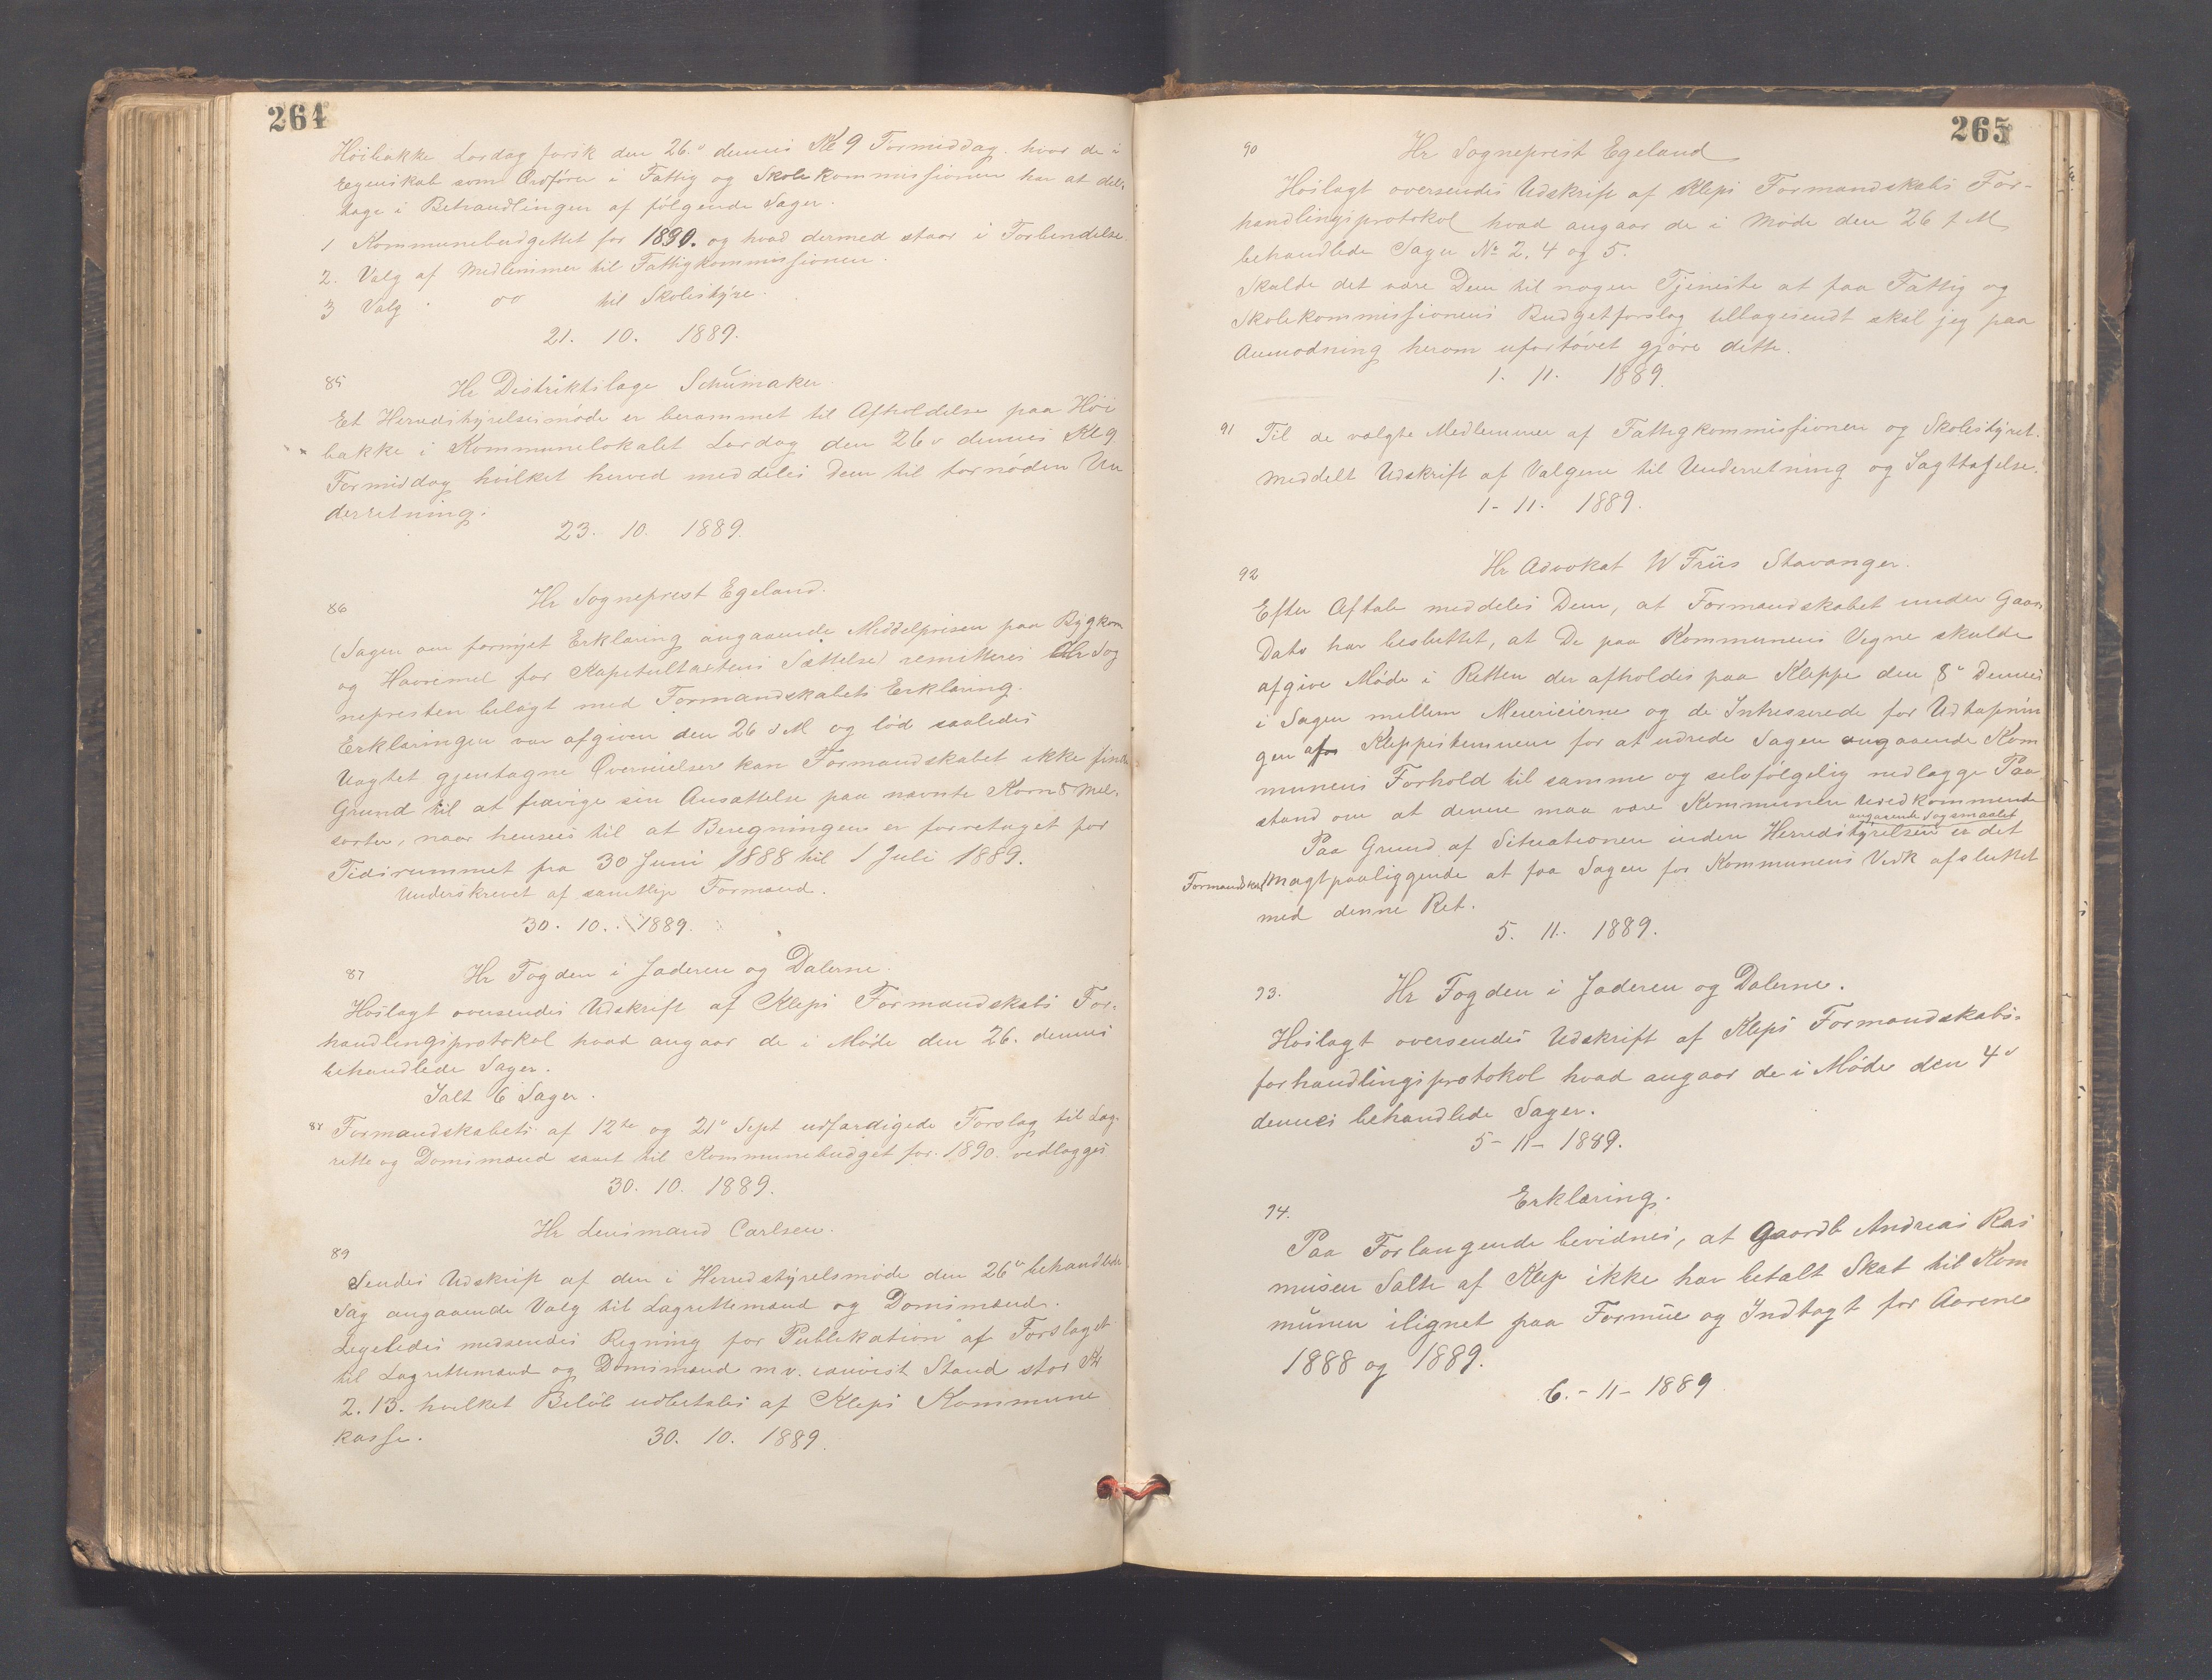 264
Höibakke Lördag forik den 26.' dennes Kl 9 Formiddag. hvor de i
Egenskab som Ordförer i Fattig og Skolekommissionen har at del-
tage i Behandlingen af fölgende Sager.
1 Kommunebudgettet for 1890. og hvad dermed staar i Forbindelse.
2. Valg af Medlemmer til Fattigkommissionen.
3 Valg " oo til Skolestyre.
21. 10. 1889.
85 Hr Distriktslæge Schumaker.
Et Herredstyrelsesmöde er berammet til Afholdelse paa Höi
bakke i Kommunelokalet Lördag den 26 v dennes Kl 9
Formiddag hvilket herved meddeles Dem til fornöden Un
derretning.
23. 10. 1889.
86 Hr Sogneprest Egeland.
(Sagen om fornyet Erklæring angaaende Middelprisen paa Bygkorn
og Havremel for Kapitultaxtens Sættelse) remitteres Hr Sog
nepresten belagt med Formandskabets Erklæring.
Erklæringen var afgiven den 26 d M og löd saaledes
Uagtet gjentagne Overveielser kan Formandskabet ikke finde
Grund til at fravige sin Ansættelse paa nævnte Korn & Mel-
sorter, naar hensees til at Beregningen er foretaget for
Tidsrummet fra 30 Juni 1888 til 1 Juli 1889.
Underskrevet af samtlige Formænd.
30. 10. 1889.
87 Hr Fogden i Jæderen og Dalerne.
Höilagt oversendes Udskrift af Kleps Formandskabs For-
handlingsprotokol hvad angaar de i Möde den 26. dennes
behandlede Sager.
Ialt 6 Sager.
88 Formandskabets af 12te og 21' Sept udfærdigede Forslag til Lag-
rette og Domsmænd samt til Kommunebudget for 1890. vedlægges
30. 10. 1889.
Hr Lensmand Carlsen.
89
Sendes Udskrift af den i Herredstyrelsmöde den 26' behandlede
Sag angaaende Valg til Lagrettemænd og Domsmænd.
Ligeledes medsendes Regning for Publikation af Forslaget
til Lagrettemænd og Domsmænd m v. anvist Stand stor Kr
2.13. hvilket Belöb udbetales af Kleps Kommune
kasse. 30. 10. 1889.
265
90 Hr Sogneprest Egeland
Höilagt oversendes Udskrift af Kleps Formandskabs For-
handlingsprotokol hvad angaar de i Möde den 26 f M
behandlede Sager No 2, 4 og 5.
Skulde det være Dem til nogen Tjeneste at faa Fattig og
Skolekommissionens Budgetforslag tilbagesendt skal jeg paa
Anmodning herom ufortövet gjöre dette.
1. 11. 1889.
91 Til de valgte Medlemmer af Fattigkommissionen og Skolestyret
meddelt Udskrift af Valgene til Underretning og Iagttagelse.
1- 11. 1889.
92 Hr Advokat W Friis Stavanger.
Efter Aftale meddeles Dem, at Formandskabet under Gaars
Dato har besluttet, at De paa Kommunens Vegne skulde
afgive Möde i Retten der afholdes paa Kleppe den 8' dennes
i Sagen mellem Meierieierne og de Intresserede for Udtapnin
gen af Kleppestemmen for at udrede Sagen angaaende Kom
munens Forhold til samme og selvfölgelig nedlægge Paa
stand om at denne maa være Kommunen uvedkommende
angaaende Sögsmaalet
Paa Grund af Situationen inden Herredstyrelsen er det
Formandskabet magtpaaliggende at faa Sagen for Kommunens Vedk afsluttet
med denne Ret.
5. 11. 1889.
93. Hr Fogden i Jæderen og Dalerne.
Höilagt oversendes Udskrift af Kleps Formandskabs-
forhandlingsprotokol hvad angaar de i Möde den 4'
dennes behandlede Sager.
5- 11- 1889.
94. Erklæring.
Paa Forlangende bevidnes, at Gaardb Andreas Ras
musen Salte af Klep ikke har betalt Skat til Kom
munen ilignet paa Formue og Indtægt for Aarene
1888 og 1889.
6.- 11- 1889